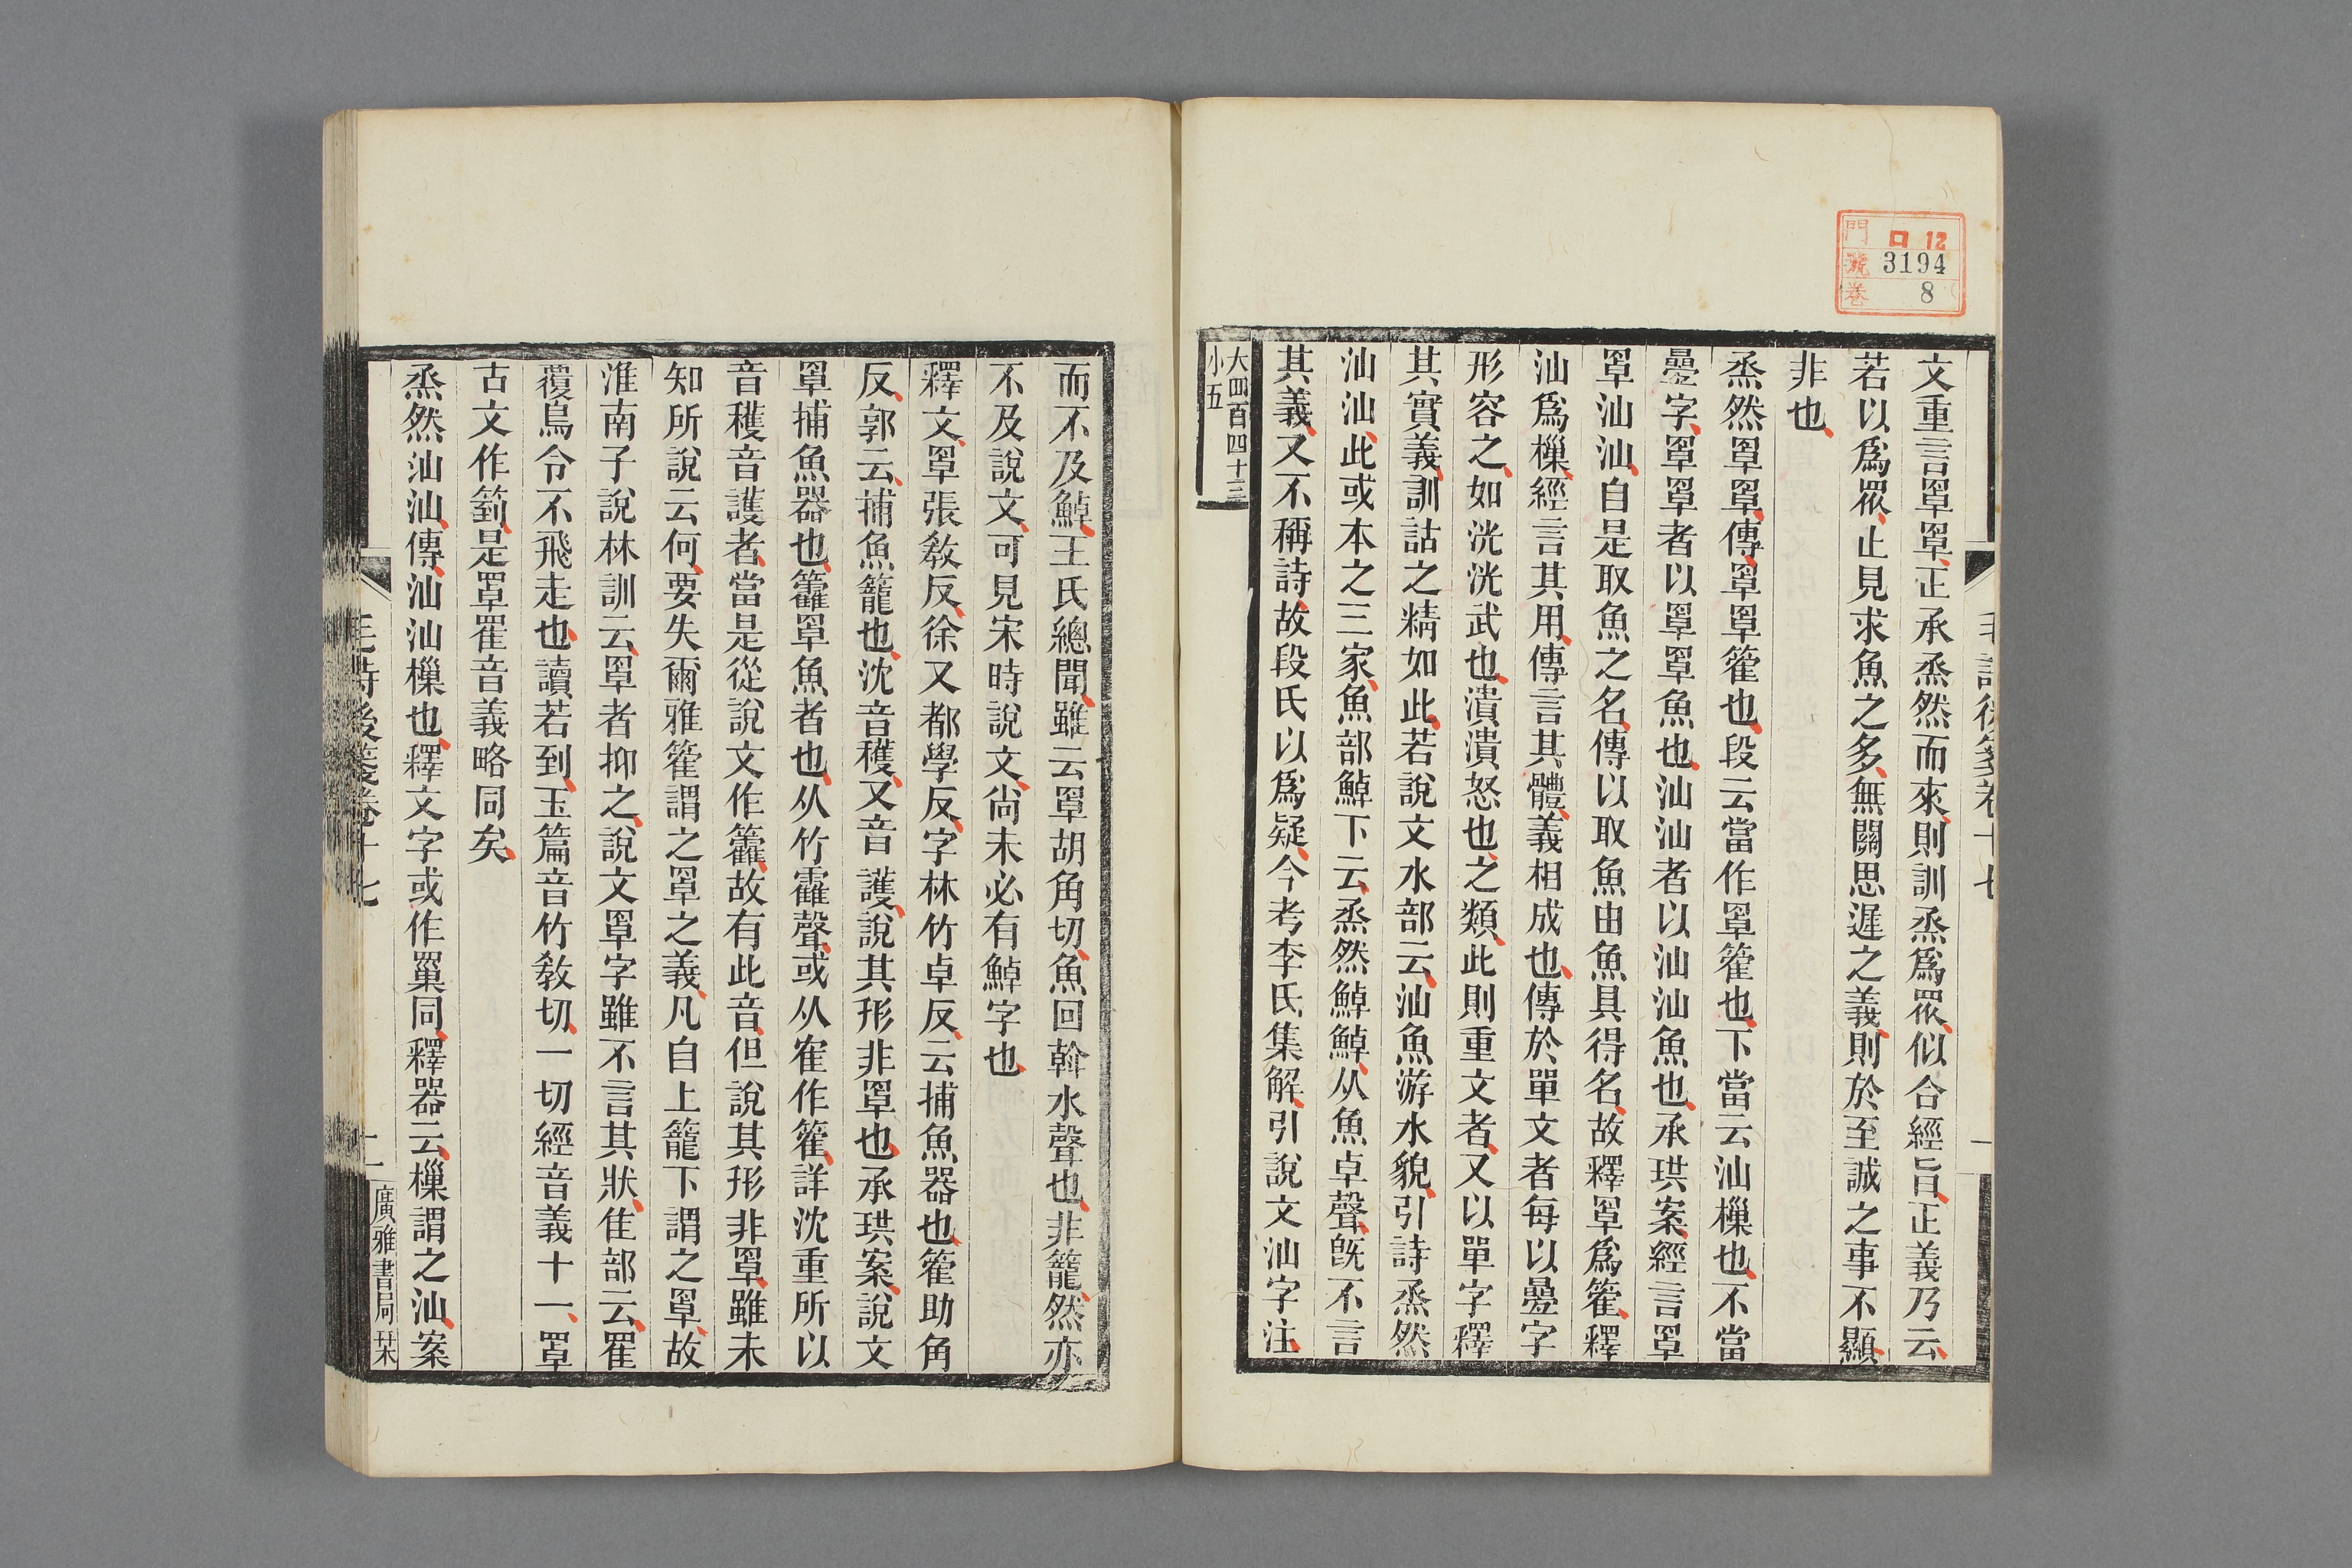 門 口 12
號 3194
卷 8
文重言罩罩正承烝然而來則訓烝爲眾似合經旨正義乃云
若以爲眾止見求魚之多無關思遲之義則於至誠之事不顯
非也
烝然罩罩傳罩罩籗也段云當作罩籗也下當云汕樔也不當
疊字罩罩者以罩罩魚也汕汕者以汕汕魚也承珙案經言罩
罩汕汕自是取魚之名傳以取魚由魚具得名故釋罩爲籗釋
汕爲樔經言其用傳言其體義相成也傳於單文者每以疊字
形容之如洸洸武也潰潰怒也之類此則重文者又以單字釋
其實義訓詁之精如此若說文水部云汕魚游水貌引詩烝然
汕汕此或本之三家魚部鯙下云烝然鯙鯙从魚卓聲旣不言
其義又不稱詩故段氏以爲疑今考李氏集解引說文汕字注
大四百四十三
小五
而不及鯙王氏總聞雖云罩胡角切魚回斡水聲也非籠然亦
不及說文可見宋時說文尙未必有鯙字也
釋文罩張敎反徐又都學反字林竹卓反云捕魚器也籗助角
反郭云捕魚籠也沈音穫又音護說其形非罩也承珙案說文
罩捕魚器也籱罩魚者也从竹靃聲或从隺作籗詳沈重所以
音穫音護者當是從說文作籱故有此音但說其形非罩雖未
知所說云何要失爾雅籗謂之罩之義凡自上籠下謂之罩故
淮南子說林訓云罩者抑之說文罩字雖不言其狀隹部云䍜
覆鳥令不飛走也讀若到玉篇音竹敎切一切經音義十一罩
古文作箌是罩䍜音義略同矣
烝然汕汕傳汕汕樔也釋文字或作罺同釋器云樔謂之汕案
毛詩後箋卷十七
廣雅書局栞